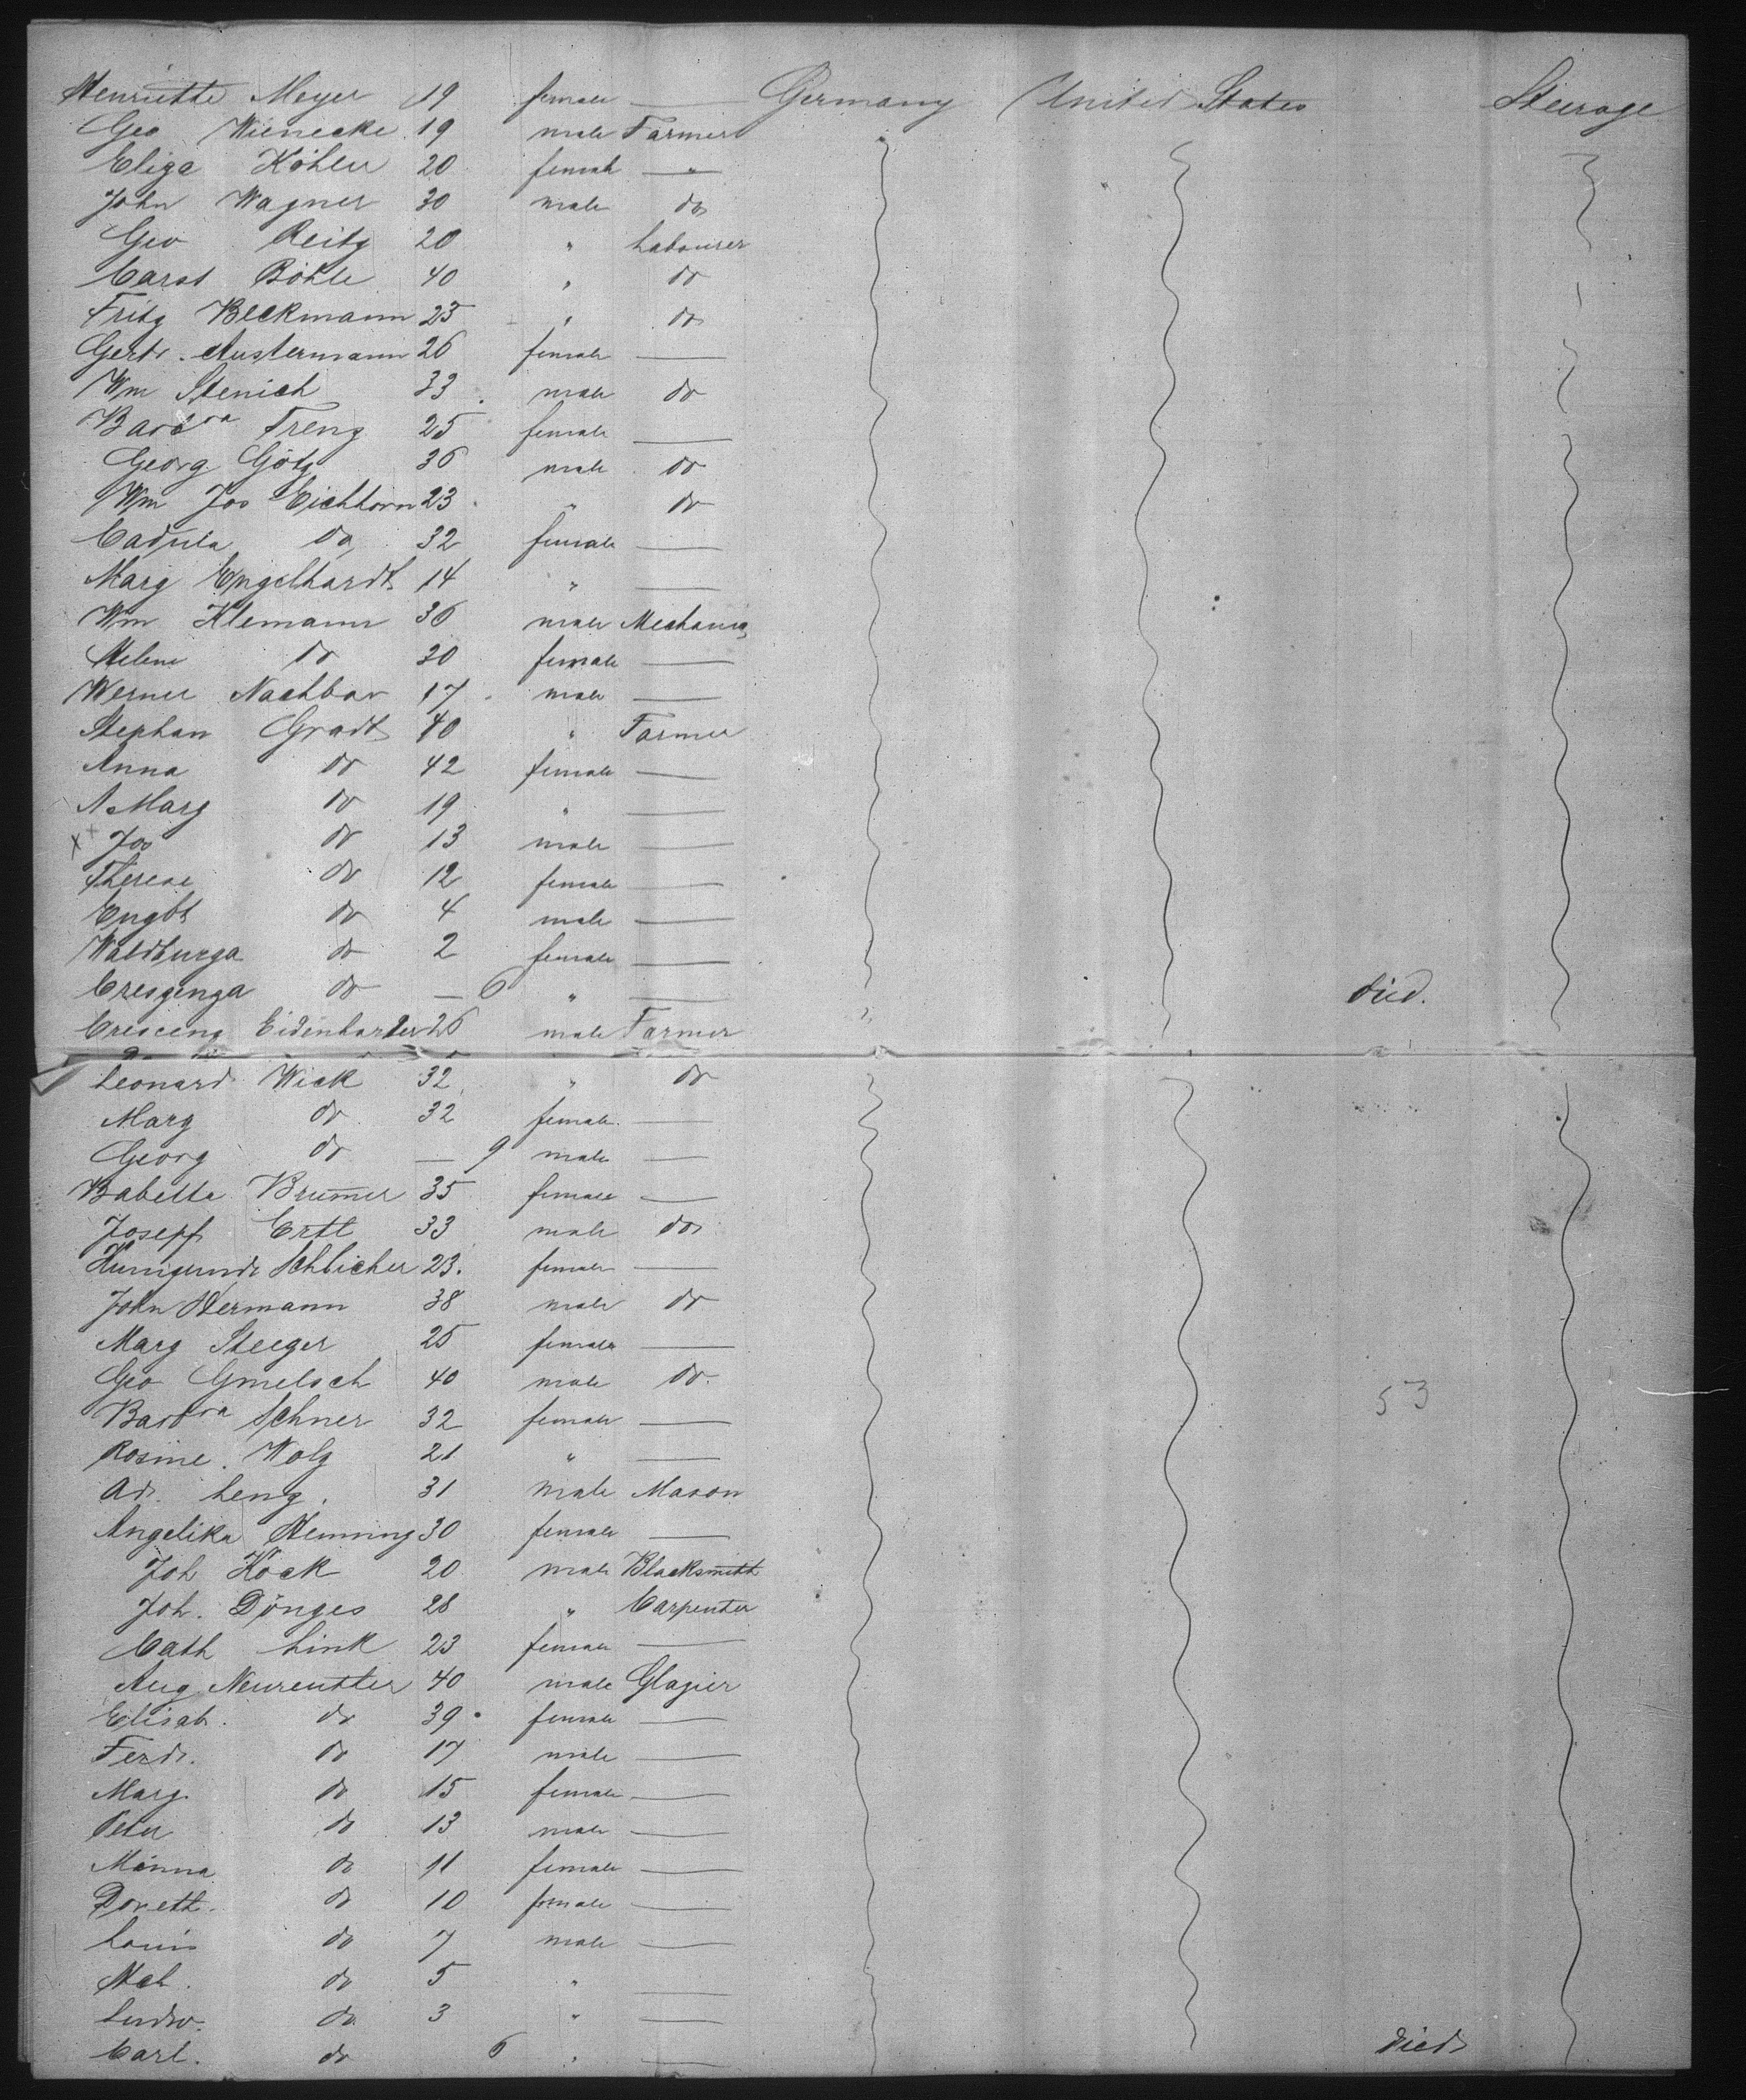 Henriette Meyer 19 female — Germany United States Steerage
Geo Wienecke 19 male Farmer
Eliza Köhler 20 female — "
John Wagner 30 male do
Geo Reitz 20 " Labourer
Carst Böhle 40 " do
Fritz Beckmann 25 " do
Gertr. Austermann 26 female —
Wm Stenich 33 male do
Barbra Treng 25 female —
Georg Götz 36 male do
Wm Jos Eichhorn 23 " do
do 32 female —
Marg Engelhardt 14 " —
Wm Klemann 36 male Mechanic
Helene do 30 female —
Werner Nachbar 17 male —
Stephan Gradt 40 " Farmer
Anna do 42 female —
A Marg do 19 " —
Jos do 13 male —
Therese do 12 female —
Engbt do 4 male —
Waldburga do 2 female —
Creszenza do — 6 " — died.
Crescenz Eidenharder 26 male Farmer
Leonard Wick 32 " do
Marg do 32 female —
Georg do — 9 male —
Babetta Brum̄er 35 female —
Joseph Ertl 33 male do
Kunigunde Schlicher 23. female —
John Hermann 38 male do
Marg Steeger 25 female —
Geo Gmelsch 40 male do. 53
Barbra Schner 32 female —
Rosine. Wolz 21 " —
Ad. Leng. 31 male Mason
Angelika Henning 30 female —
Joh Kock 20 male Blacksmith
Joh. Dönges 28 " Carpenter
Cath Link 23 female —
Aug. Neureuther 40 male Glazier
Elisab. do 39 female —
Ferd. do 17 male —
Marg. do 15 female —
Peter do 13 male —
Minna do 11 female —
Dorett. do 10 female —
Louis do 7 male —
do 5 " —
Ludw. do 3 " —
Carl. do 6 " — died